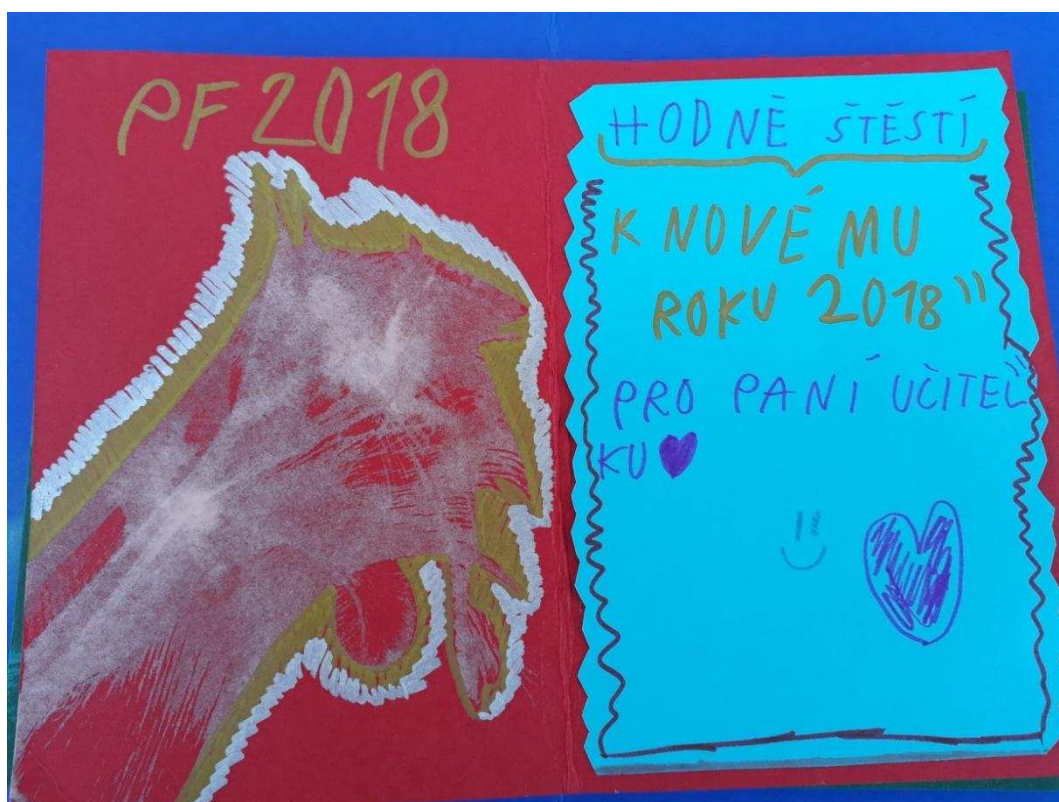 PF 2018
HODNĚ ŠTĚSTÍ
K NOVÉ MU
ROKU 2018"
PRO PANÍ UČITEL
KU